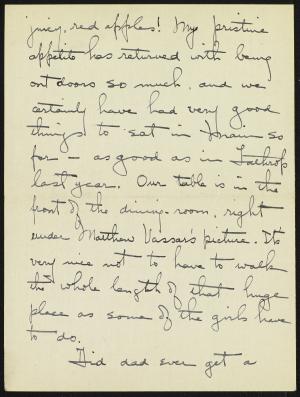 juicy, red apples! My pristine
appetite has returned with being
out doors so much, and we
certainly have had very good
things to eat in Main so
far - as good as in Lathrop
last year. Our table is in the
front of the dining-room, right
under Matthew Vassar's picture. It's
very nice not to have to walk
the whole length of that huge
place as some of the girls have
to do.
Did dad ever get a